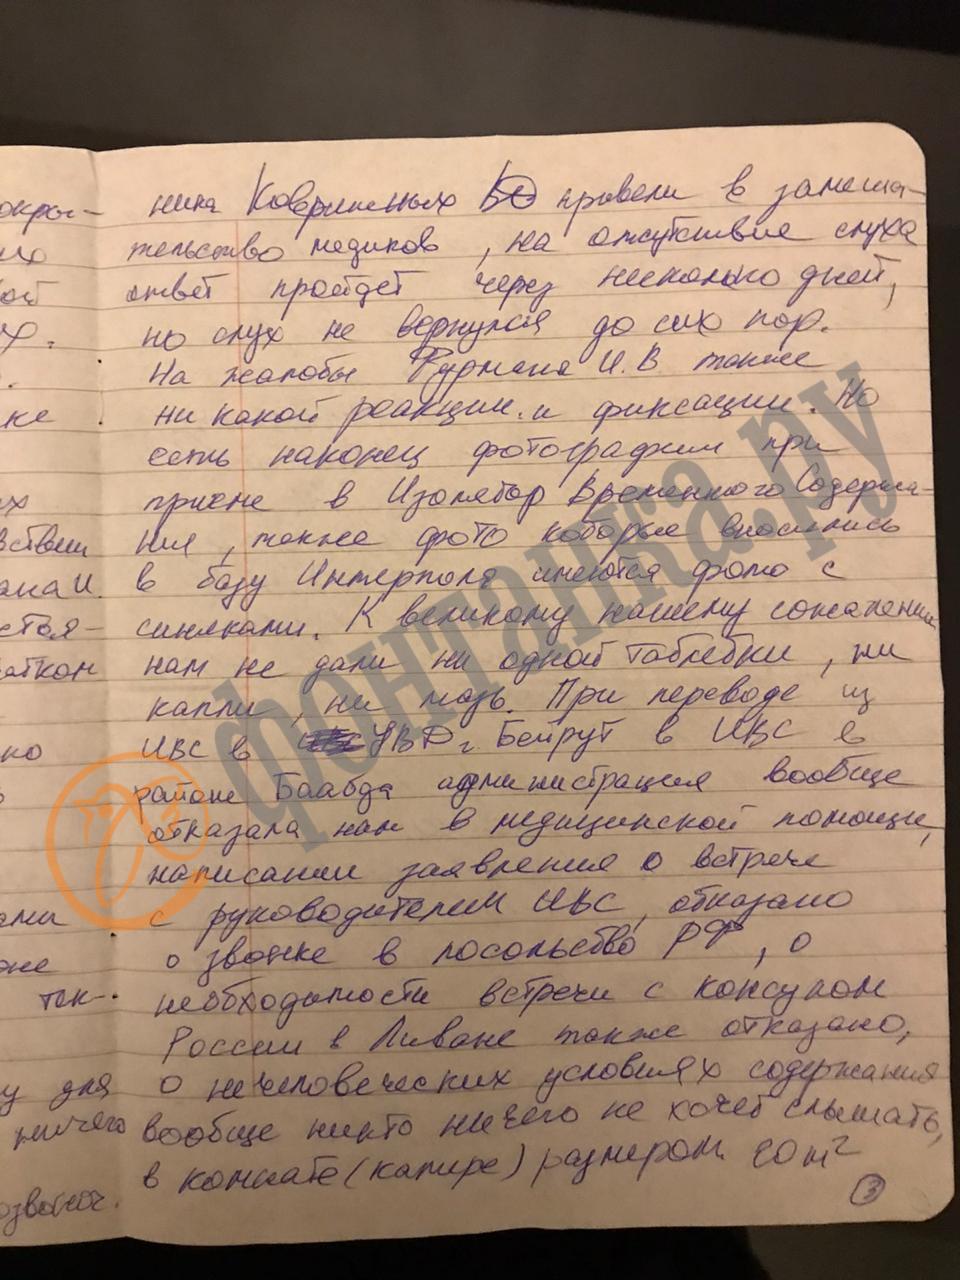 нина Коврижных ВО привели в замеша-
тельство медиков, на отсутствие слуха
ответ пройдет через несколько дней,
но слух не вернулся до сих пор.
На жалобы Фурмана И.В также
ни какой реакции и фиксации. Но
есть наконец фотографии при
приеме в Изолятор Временного Содержа-
ния, также фото которые вносились
в базу Интерпола имеются фото с
синяками. К великому нашему сожалению
нам не дали ни одной таблетки, ни
капли, ни мазь. При переводе из
ИВС в УВД г. Бейрут в ИВС в
районе Баабда администрация вообще
отказала нам в медицинской помощи,
написании заявления о встрече
с руководителем ИВС, отказано
о звонке в посольство РФ, о
необходимости встречи с консулом
России в Ливане также отказано,
о нечеловеческих условиях содержания
вообще никто ничего не хочет слышать,
в комнате (камере) размером 20 м²
3
окры-
ой
х.
ке
х
вствен
ана И.
стоя-
но
ами
оне
так-
у для
ничего
озвоноч.
фонтанка.ру